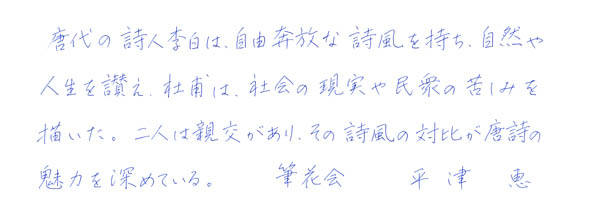 唐代の詩人李白は、自由奔放な詩風を持ち、自然や
人生を讃え、杜甫は、社会の現実や民衆の苦しみを
描いた。二人は親交があり、その詩風の対比が唐詩の
魅力を深めている。 筆花会 平津 恵